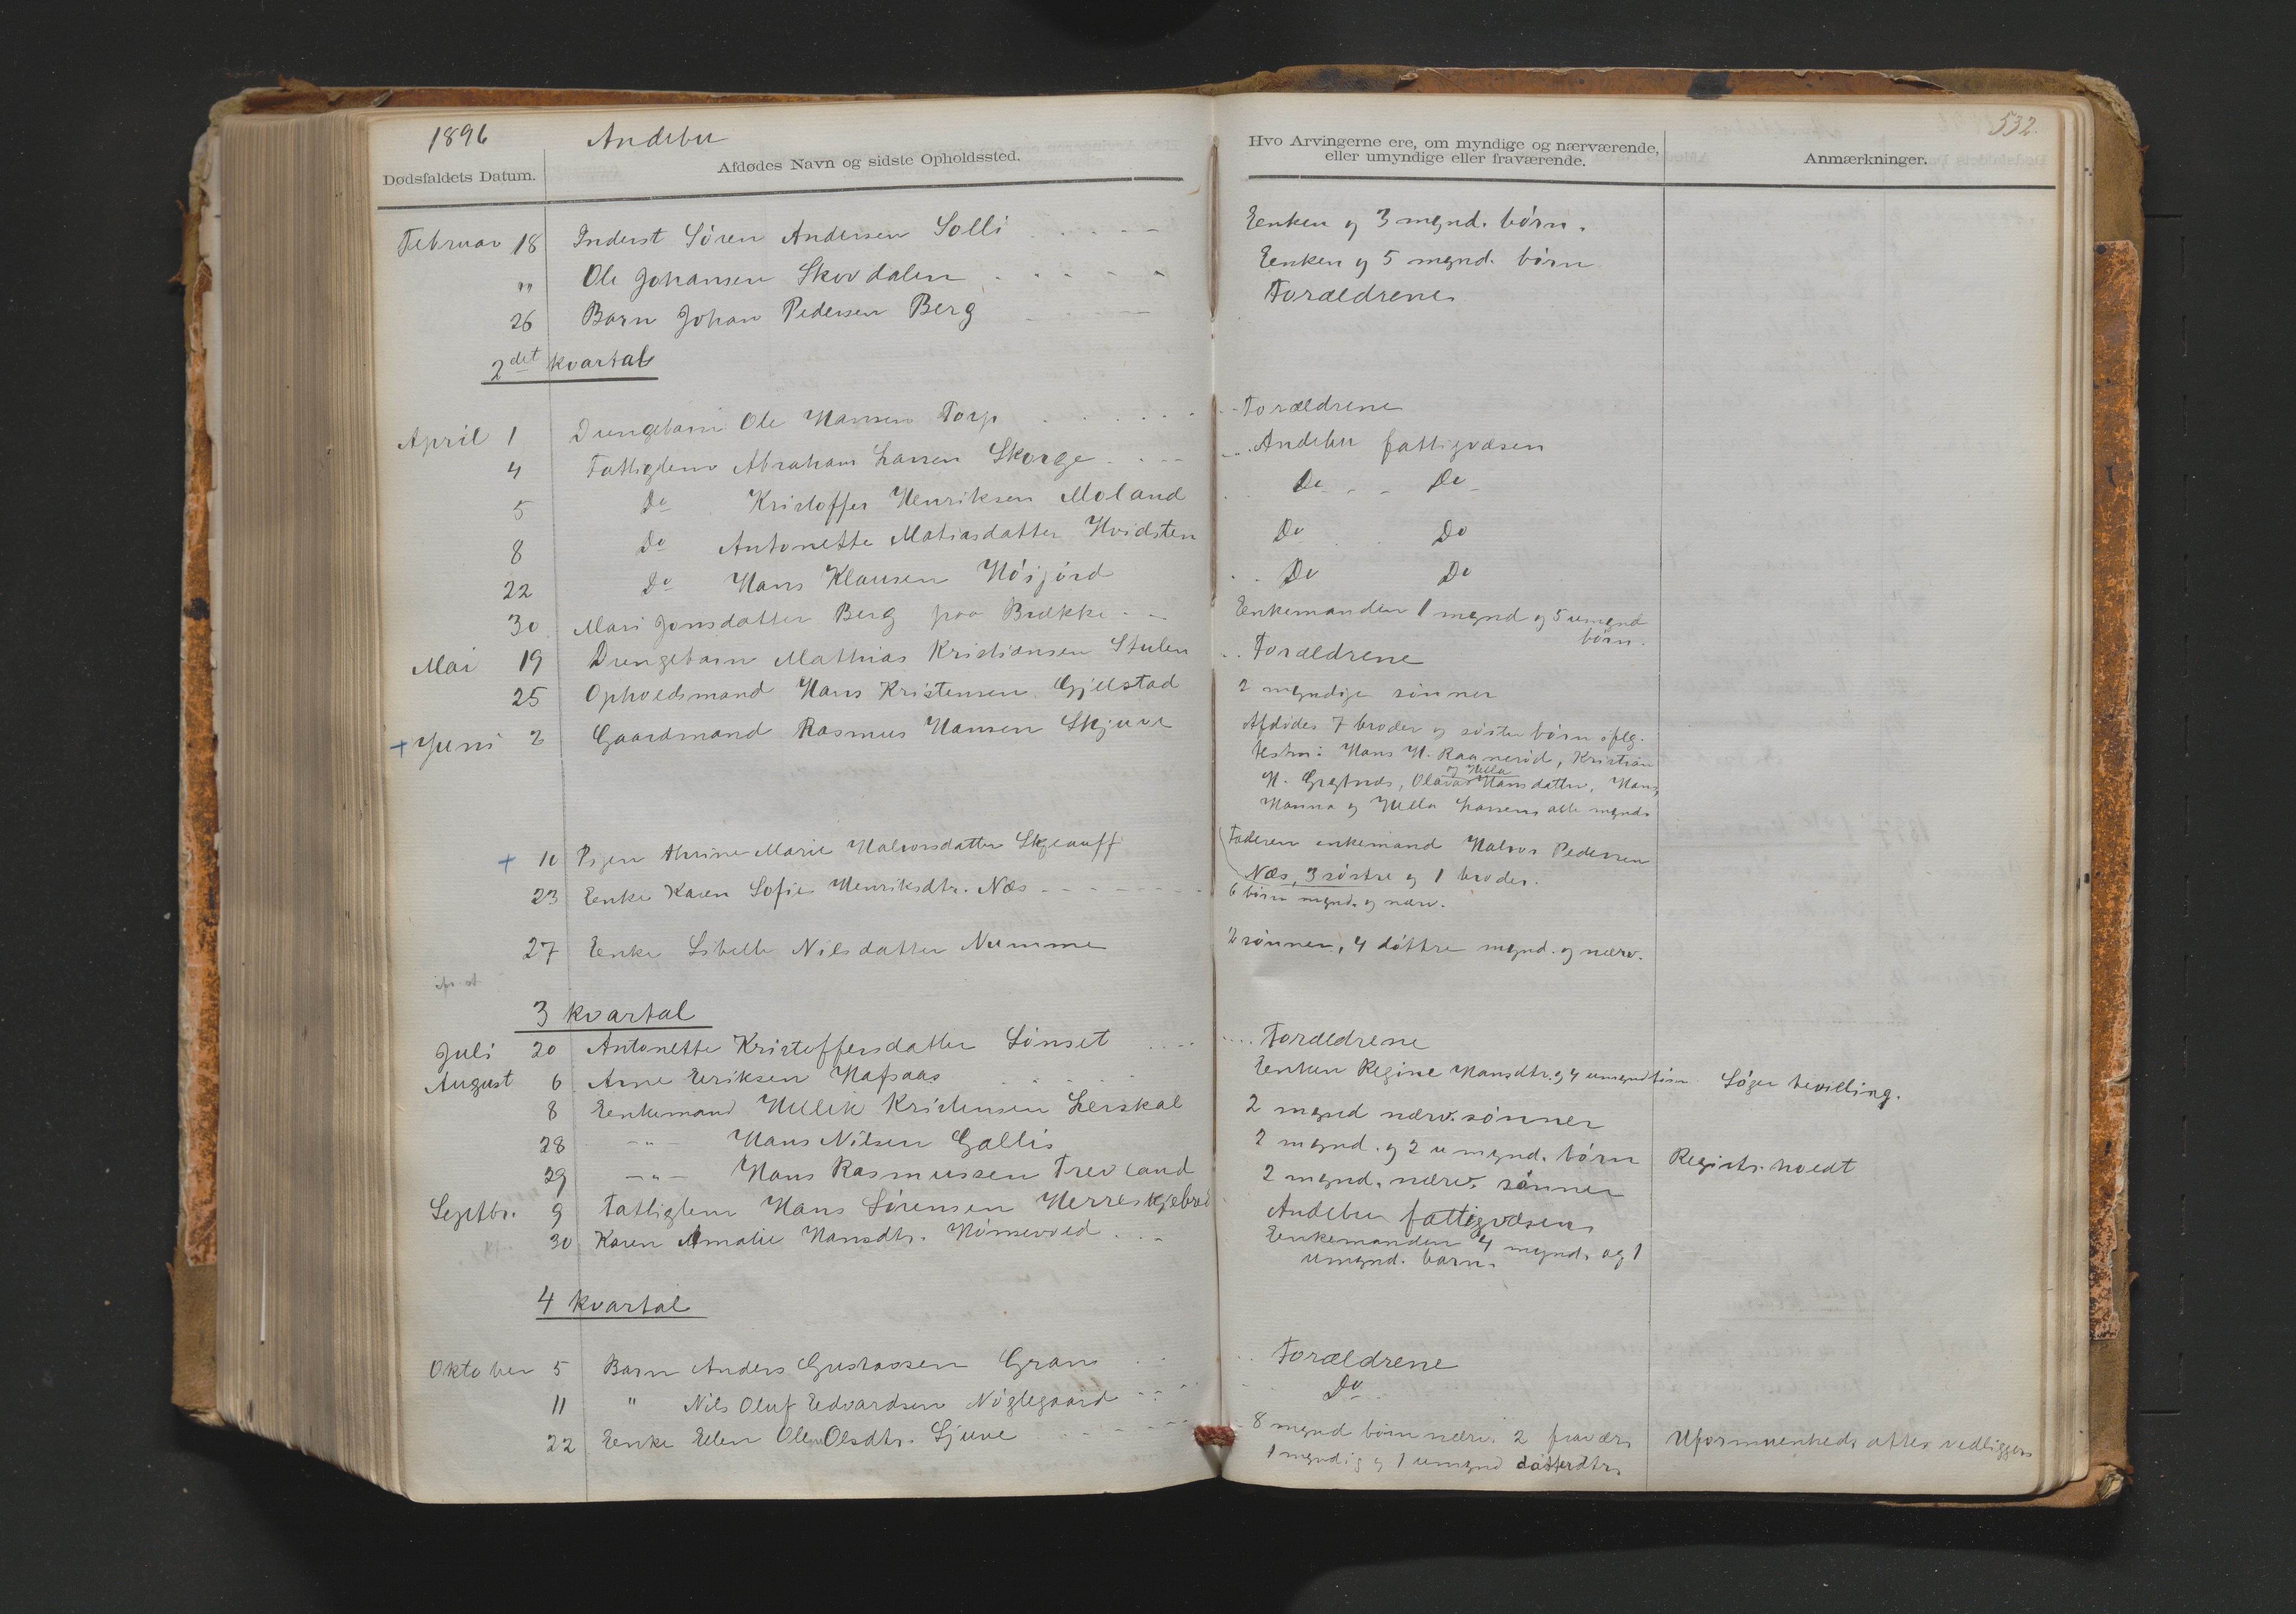 1896 Andebu
532.
Dødsfaldets Datum. Afdødes Navn og sidste Opholdssted. Hvo Arvingerne ere, om myndige og nærværende, eller umyndige eller fraværende. Anmærkninger.
Februar 18 Inderst Søren Andersen Solli Eenken og 3 mynd. børn.
" Ole Johansen Skovdalen Eenken og 5 mynd. børn
26 Barn Johan Pedersen Berg Forældrene
2det kvartal
April 1 Drengebarn Ole Hansen Torp Forældrene
4 Fattiglem Abraham Larsen Skorge Andebu fattigvæsen
5 Do Kristoffer Henriksen Moland Do Do
8 Do Antonette Matiasdatter Hvidsten Do Do
22 Do Hans Klausen Høsjørd Do Do
30 Mari Jonsdatter Berg paa Brække Enkemanden 1 mynd og 5 umynd børn.
Mai 19 Drengebarn Mathias Kristiansen Stulen Forældrene
25 Opholdsmand Hans Kristensen Gjelstad 2 myndige sønner
+ Juni 2 Gaardmand Rasmus Hansen Skjave Afdødes 7 broder og søster børn ifølg.
testm: Hans H. Ragnerød, Kristian
H. Gryfnæs, Olava og Hella Hansdatter, Hans,
Hanna og Hella Larsens alle mynd.
+ 10 Pigen Thrine Marie Halvorsdatter Skjelauff Faderen enkemand Halvor Pedersen
Næs, 3 søstre og 1 broder.
23 Eenke Karen Sofie Henriksdtr. Næs 6 børn mynd. og nærv.
27 Eenke Sibille Nilsdatter Numme 2 sønner, 4 døttre mynd. og nærv.
3 kvartal
Juli 20 Antonette Kristoffersdatter Sønset Forældrene
August 6 Arne Eeriksen Hafsaas Eenken Regine Hansdtr. og 4 umynd børn Søger bevilling.
8 Eenkemand Hellik Kristensen Lerskal 2 mynd nærv. sønner
28 -"- Hans Nilsen Gallis 2 mynd. og 2 umynd. børn Registr. holdt
29 -"- Hans Rasmussen Trevland 2 mynd. nærv. sønner
Septbr. 9 Fattiglem Hans Sørensen Herreskjebrød Andebu fattigvæsen
30 Karen Amalie Hansdtr. Hømevold Eenkemanden 4 mynd. og 1
umynd. barn.
4 kvartal
Oktober 5 Barn Anders Gustavsen Gran Forældrene
11 " Nils Oluf Eedvardsen Nøglegaard Do
22 Eenke Eelen Ole Olsdtr. Sjuve 8 mynd børn nærv. 2 fravær. Uformuenheds attes vedligger
1 myndig og 1 umynd datterdtr.